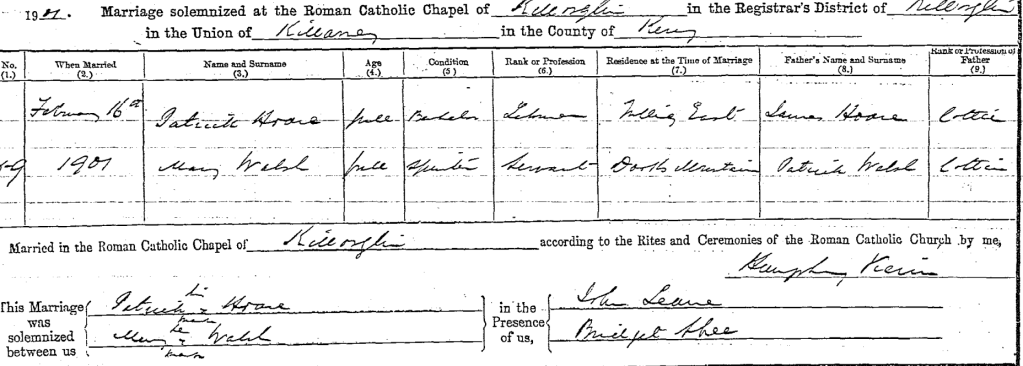 1901. Marriage solemnized at the Roman Catholic Chapel of Killorglin in the Registrar's District of Killorglin
in the Union of Killarney in the County of Kerry
No. (1.) When Married (2.) Name and Surname (3.) Age (4.) Condition (5) Rank or Profession (6.) Residence at the Time of Marriage (7.) Father's Name and Surname (8.) Rank or Profession of Father (9.)
February 16th Patrick Hoare full Bachelor Labourer East James Hoare Cottier
1901 Mary Walsh full Spinster Servant Dooks Mountain Patrick Walsh Cottier
Married in the Roman Catholic Chapel of Killorglin according to the Rites and Ceremonies of the Roman Catholic Church by me,
Humphrey
This Marriage was solemnized between us
Patrick his x mark Hoare
Mary her x mark Walsh
in the Presence of us,
John Leane
Bridget Shee